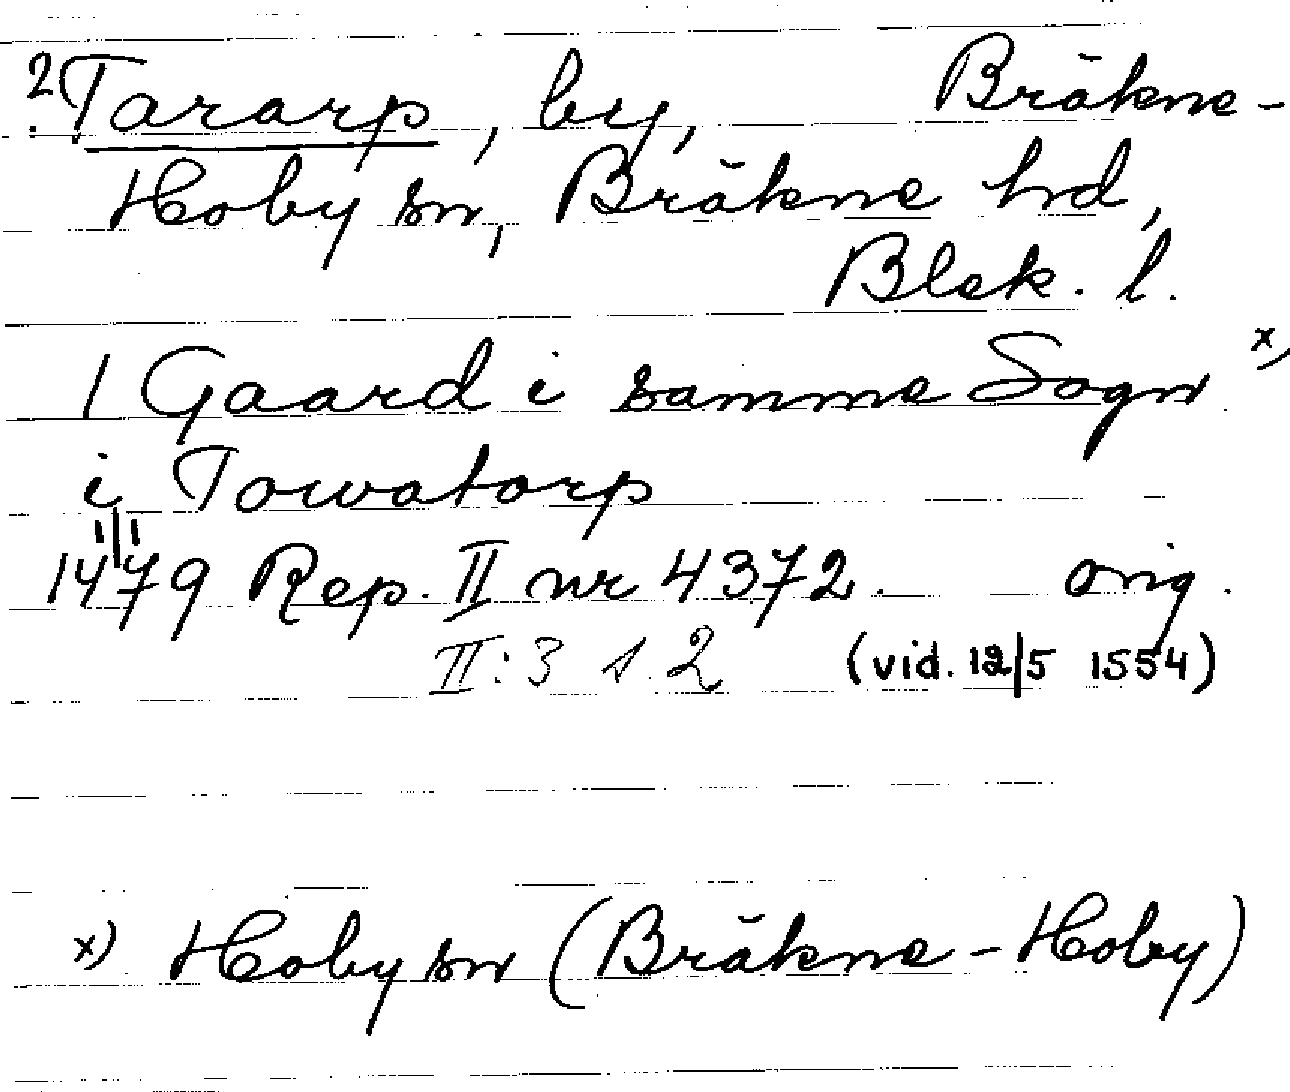 2. Tararp, by, Bräkne-
Hoby sn, Bräkne hd,
Blek. l.
1 Gaard i samme Sogn x)
i Towatorp
1479 Rep. II nr 4372. orig.
II:3 s. 2 (vid. 12/5 1554)
x) Hoby sn (Bräkne-Hoby)